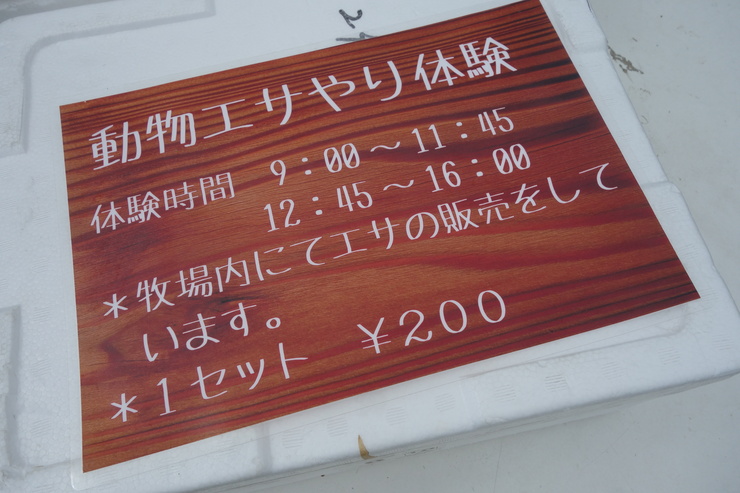 動物エサやり体験
体験時間 9:00～11:45
12:45～16:00
＊牧場内にてエサの販売をして
います。
＊1セット ¥200